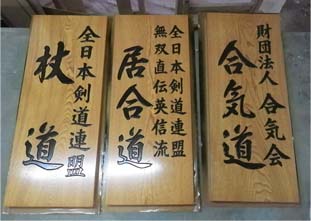 財団法人 合気会
合気道
全日本剣道連盟
無双直伝英信流
居合道
全日本剣道連盟
杖道